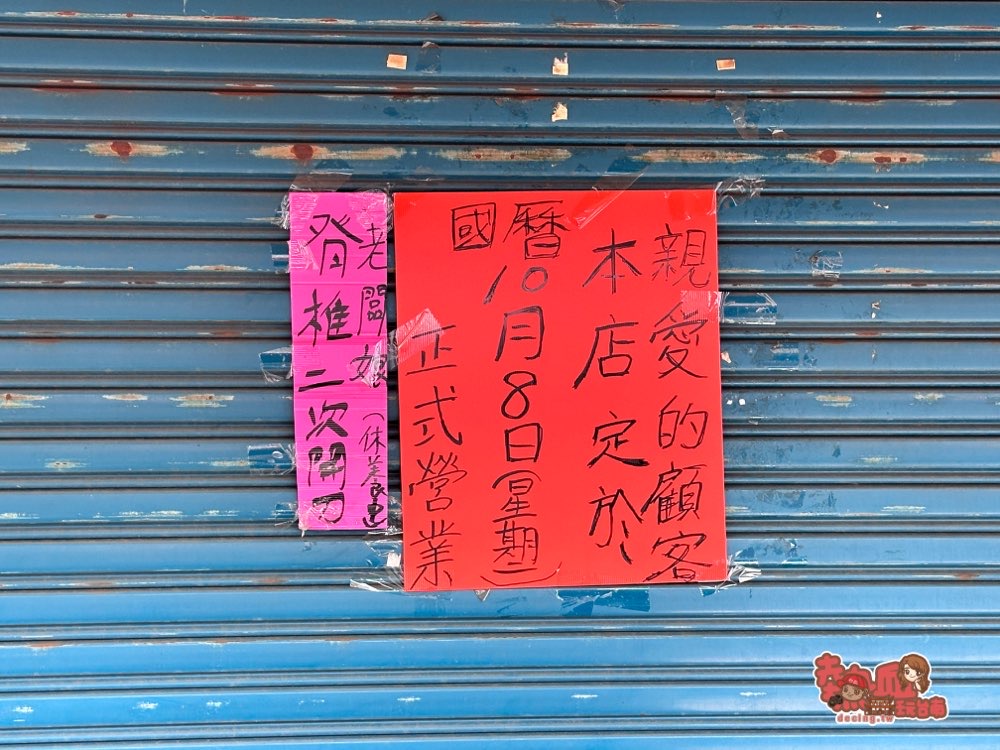 親愛的顧客
本店定於
國曆10月8日(星期一)
正式營業
老闆娘(休養
脊椎二次開刀
熱血玩台南
decing.tw